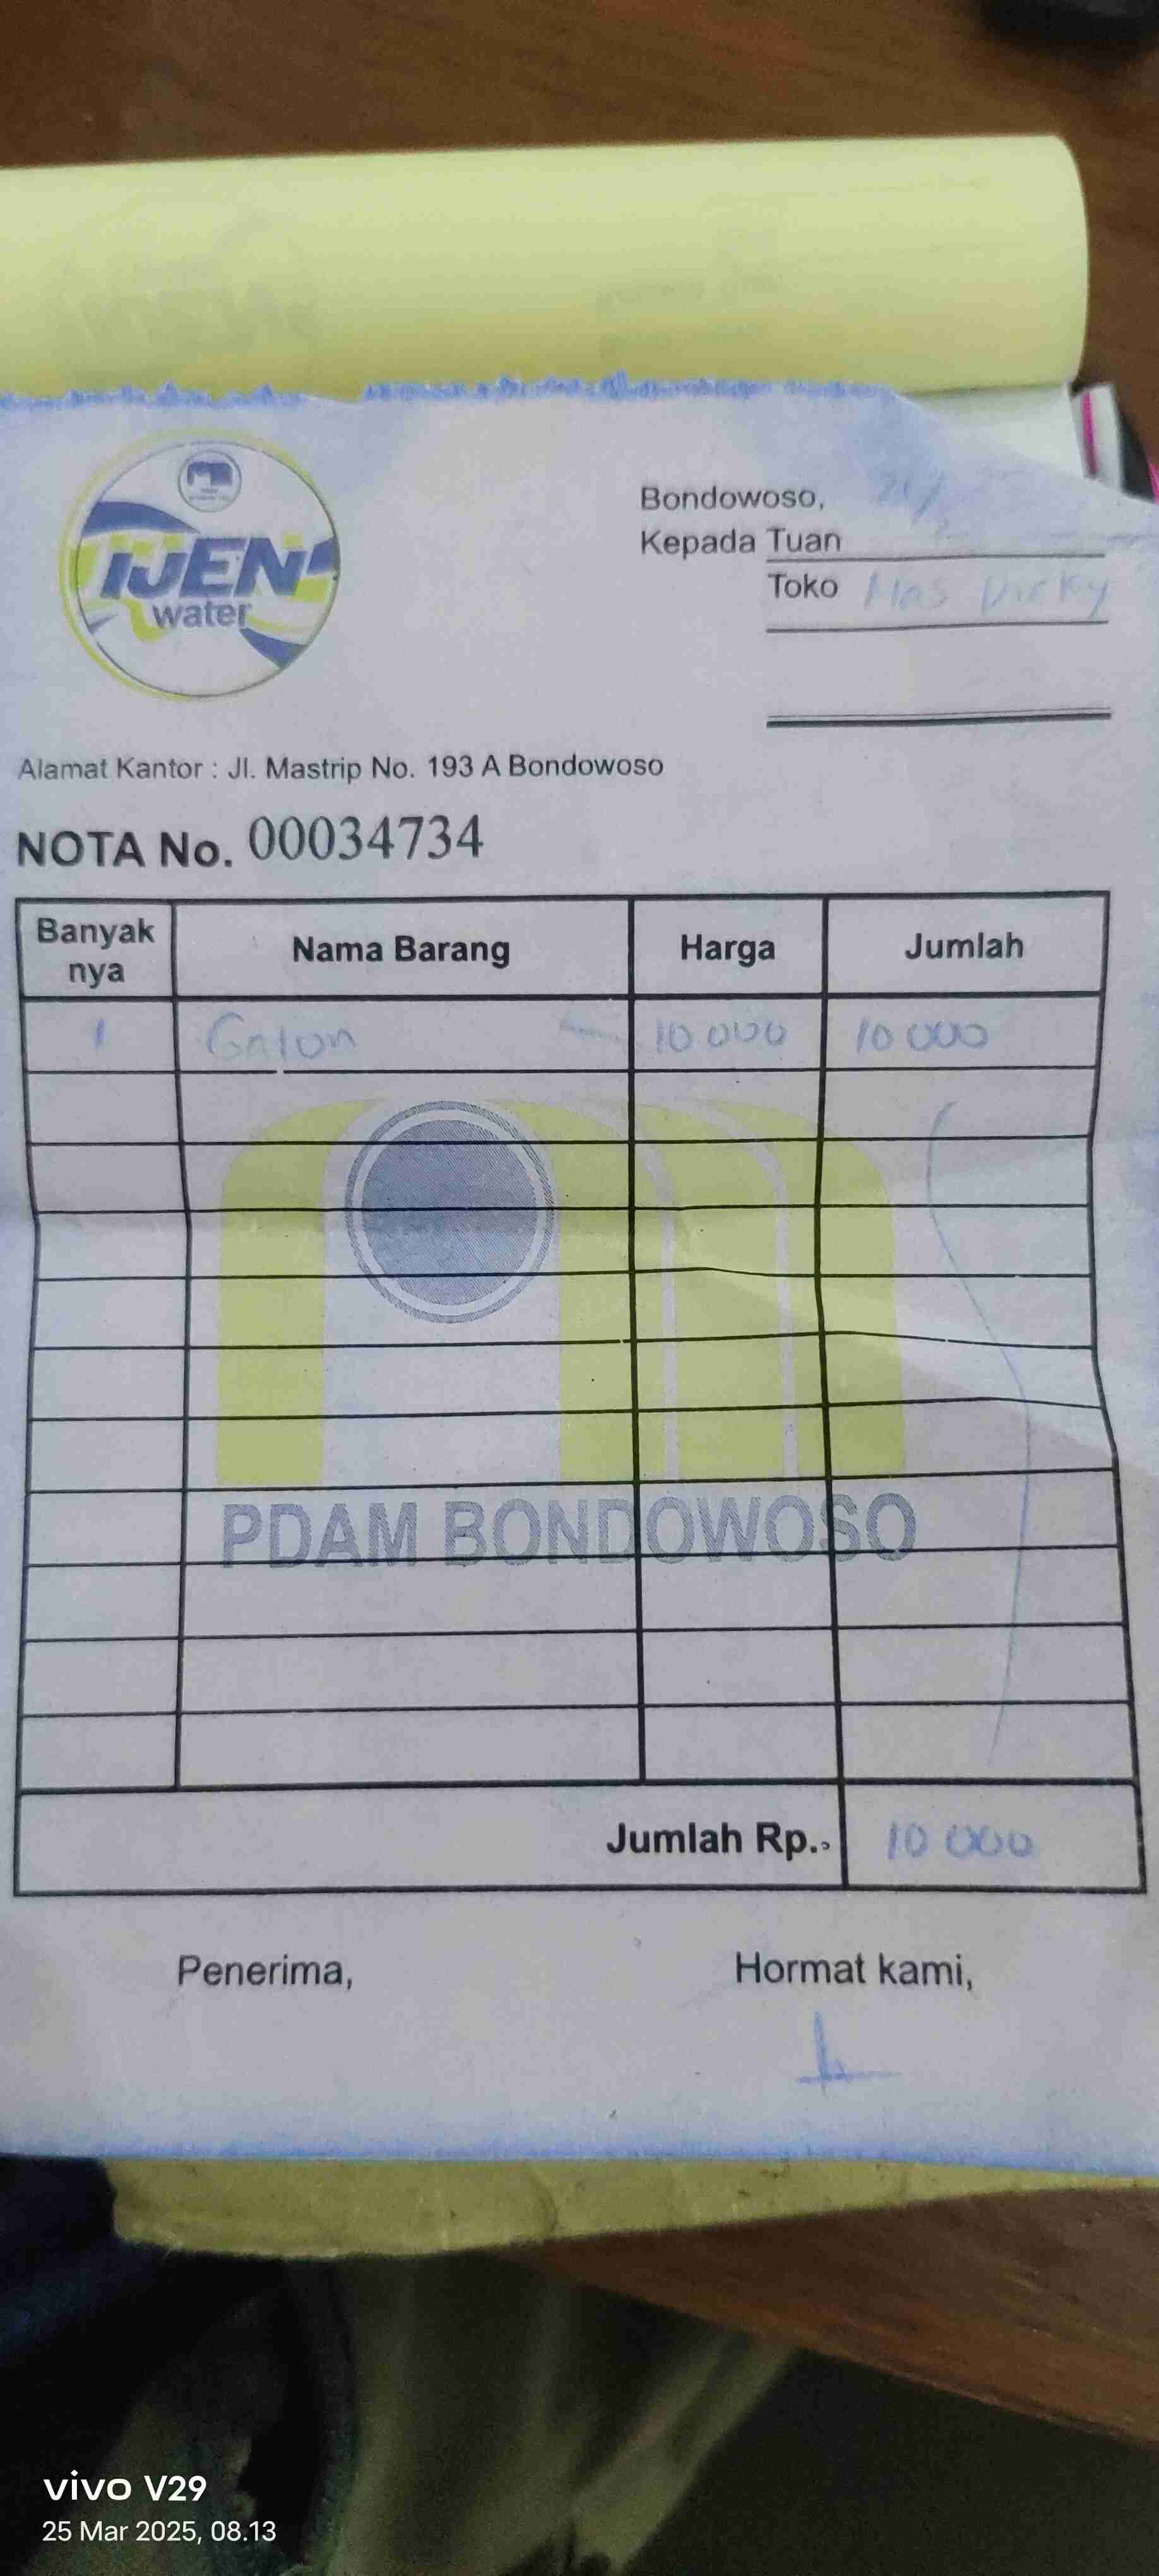 IJEN
water
Bondowoso,
Kepada Tuan
Toko Mas Dicky
Alamat Kantor : Jl. Mastrip No. 193 A Bondowoso
NOTA No. 00034734
Banyak nya Nama Barang Harga Jumlah
1 Galon 10 000 10 000
PDAM BONDOWOSO
Jumlah Rp. 10 000
Penerima, Hormat kami,
vivo V29
25 Mar 2025, 08.13